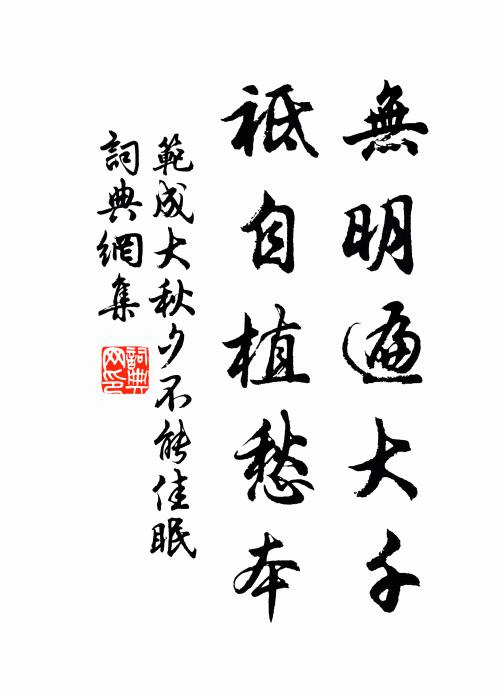 無明遍大千
祗自植愁本
範成大秋夕不能佳眠
詞典網集
詞典网印